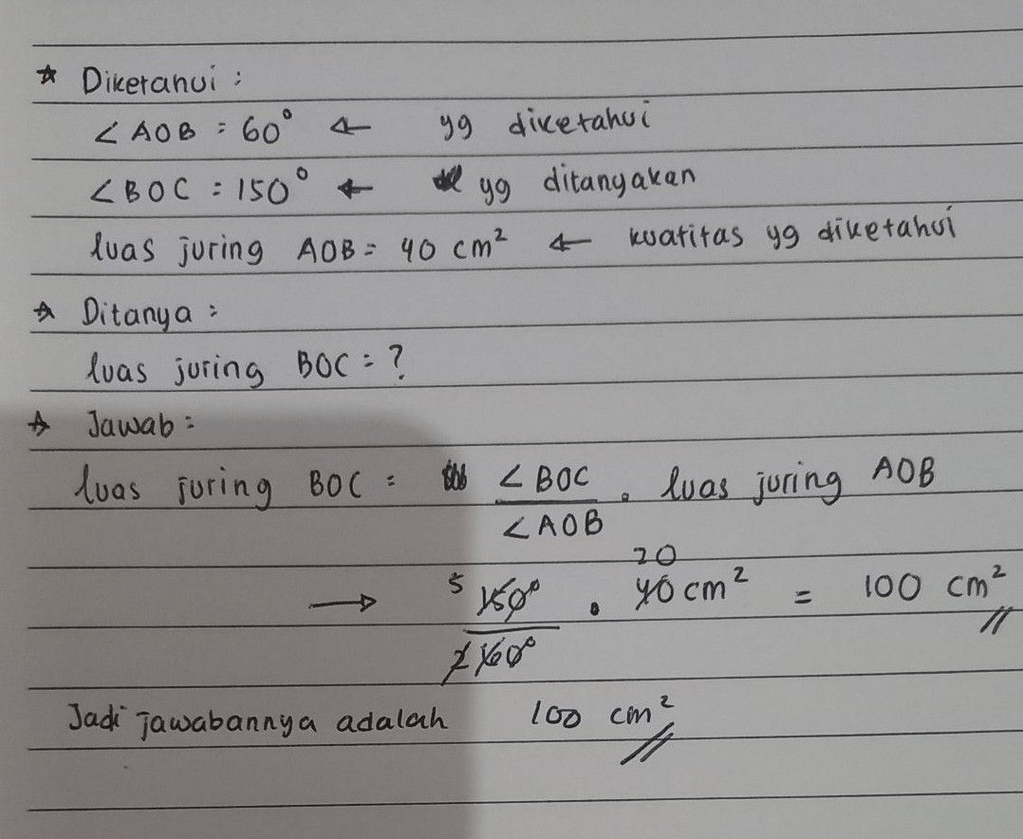 ☆ Diketahui :
∠AOB = 60° ← yg diketahui
∠BOC = 150° ← yg ditanyakan
luas juring AOB = 40 cm² ← kuatitas yg diketahui
☆ Ditanya :
luas juring BOC = ?
☆ Jawab :
luas juring BOC = ∠BOC / ∠AOB . luas juring AOB
→ 5 150° / 2 60° . 20 40 cm² = 100 cm² //
Jadi jawabannya adalah 100 cm² //